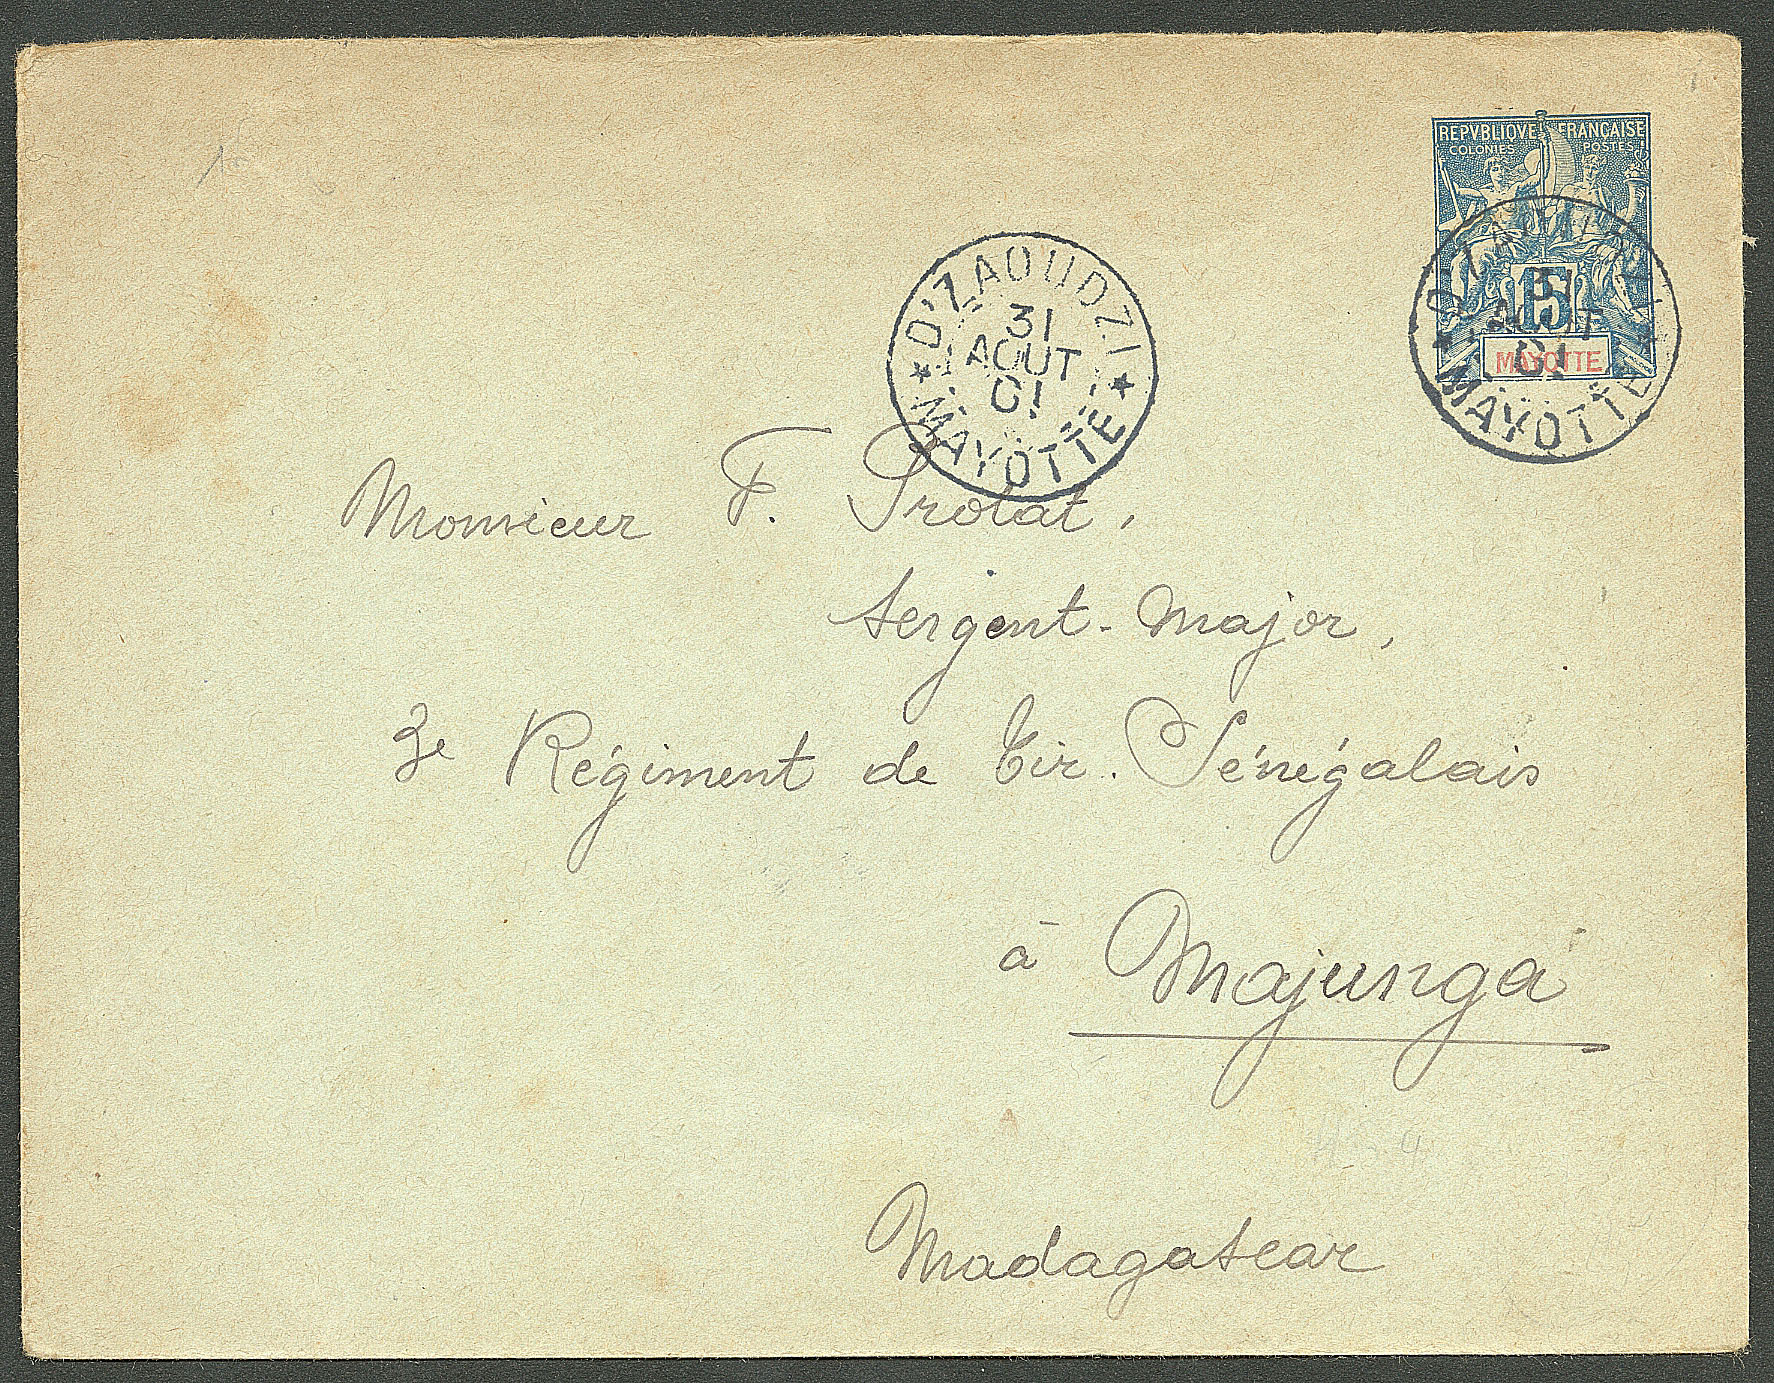 REPVBLIQVE FRANCAISE
COLONIES POSTES
15
MAYOTTE
31
AOUT
01
MAYOTTE
D'ZAOUDZI
31
AOUT
01
MAYOTTE
Monsieur F. Prolat,
Sergent-Major,
3e Régiment de Tir. Sénégalais
à Majunga
Madagascar